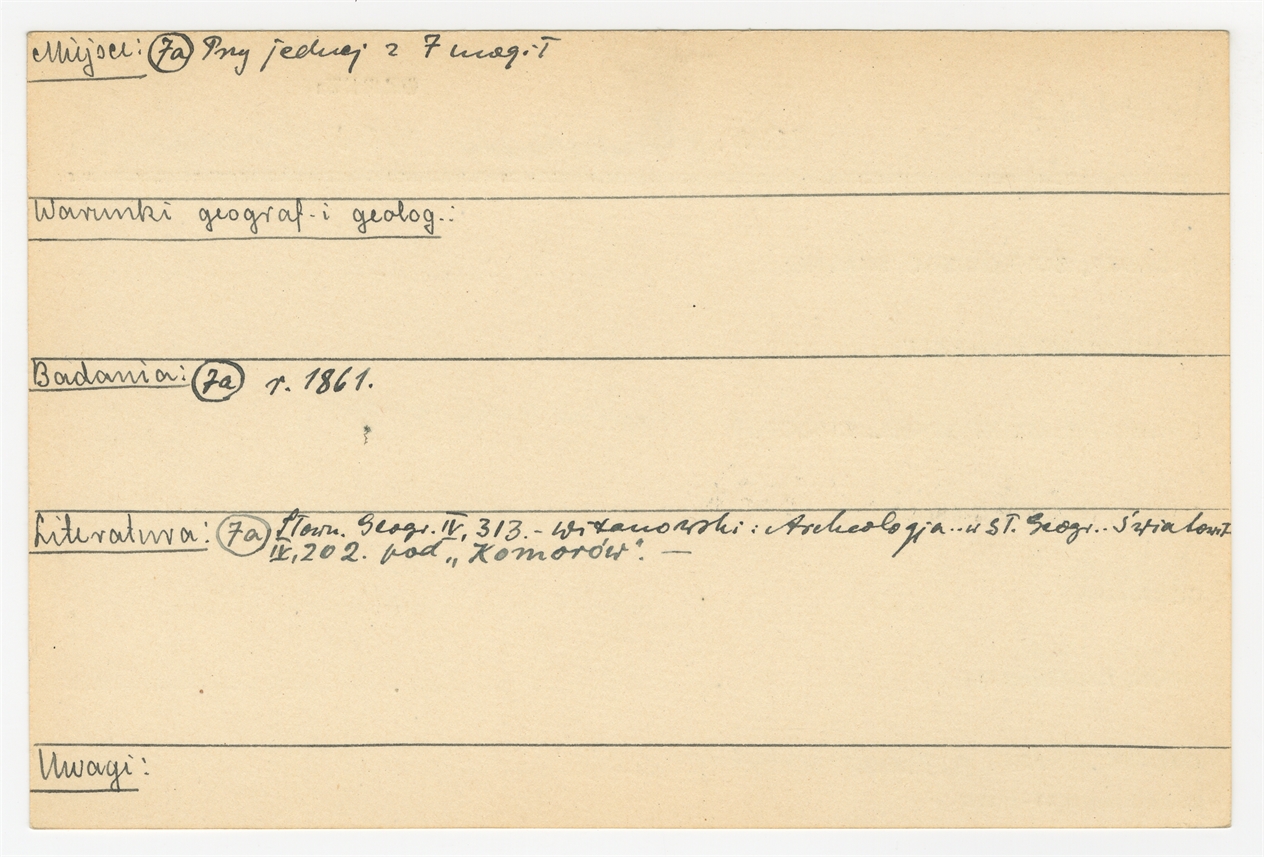 Miejsce: 7a Przy jednej z 7 mogił
Warunki geograf. i geolog.:
Badania: 7a r. 1861.
Literatura: 7a Słown. Geogr. IV, 313. - Witanowski: Archeologja.. w Sł. Geogr.. Światowit
IV, 202. pod „Komorów". —
Uwagi: